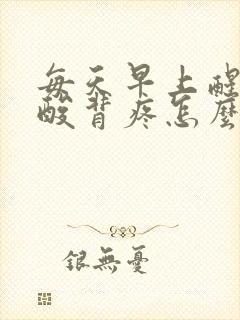 每天早上醒
酸背疼怎麼
銀無憂